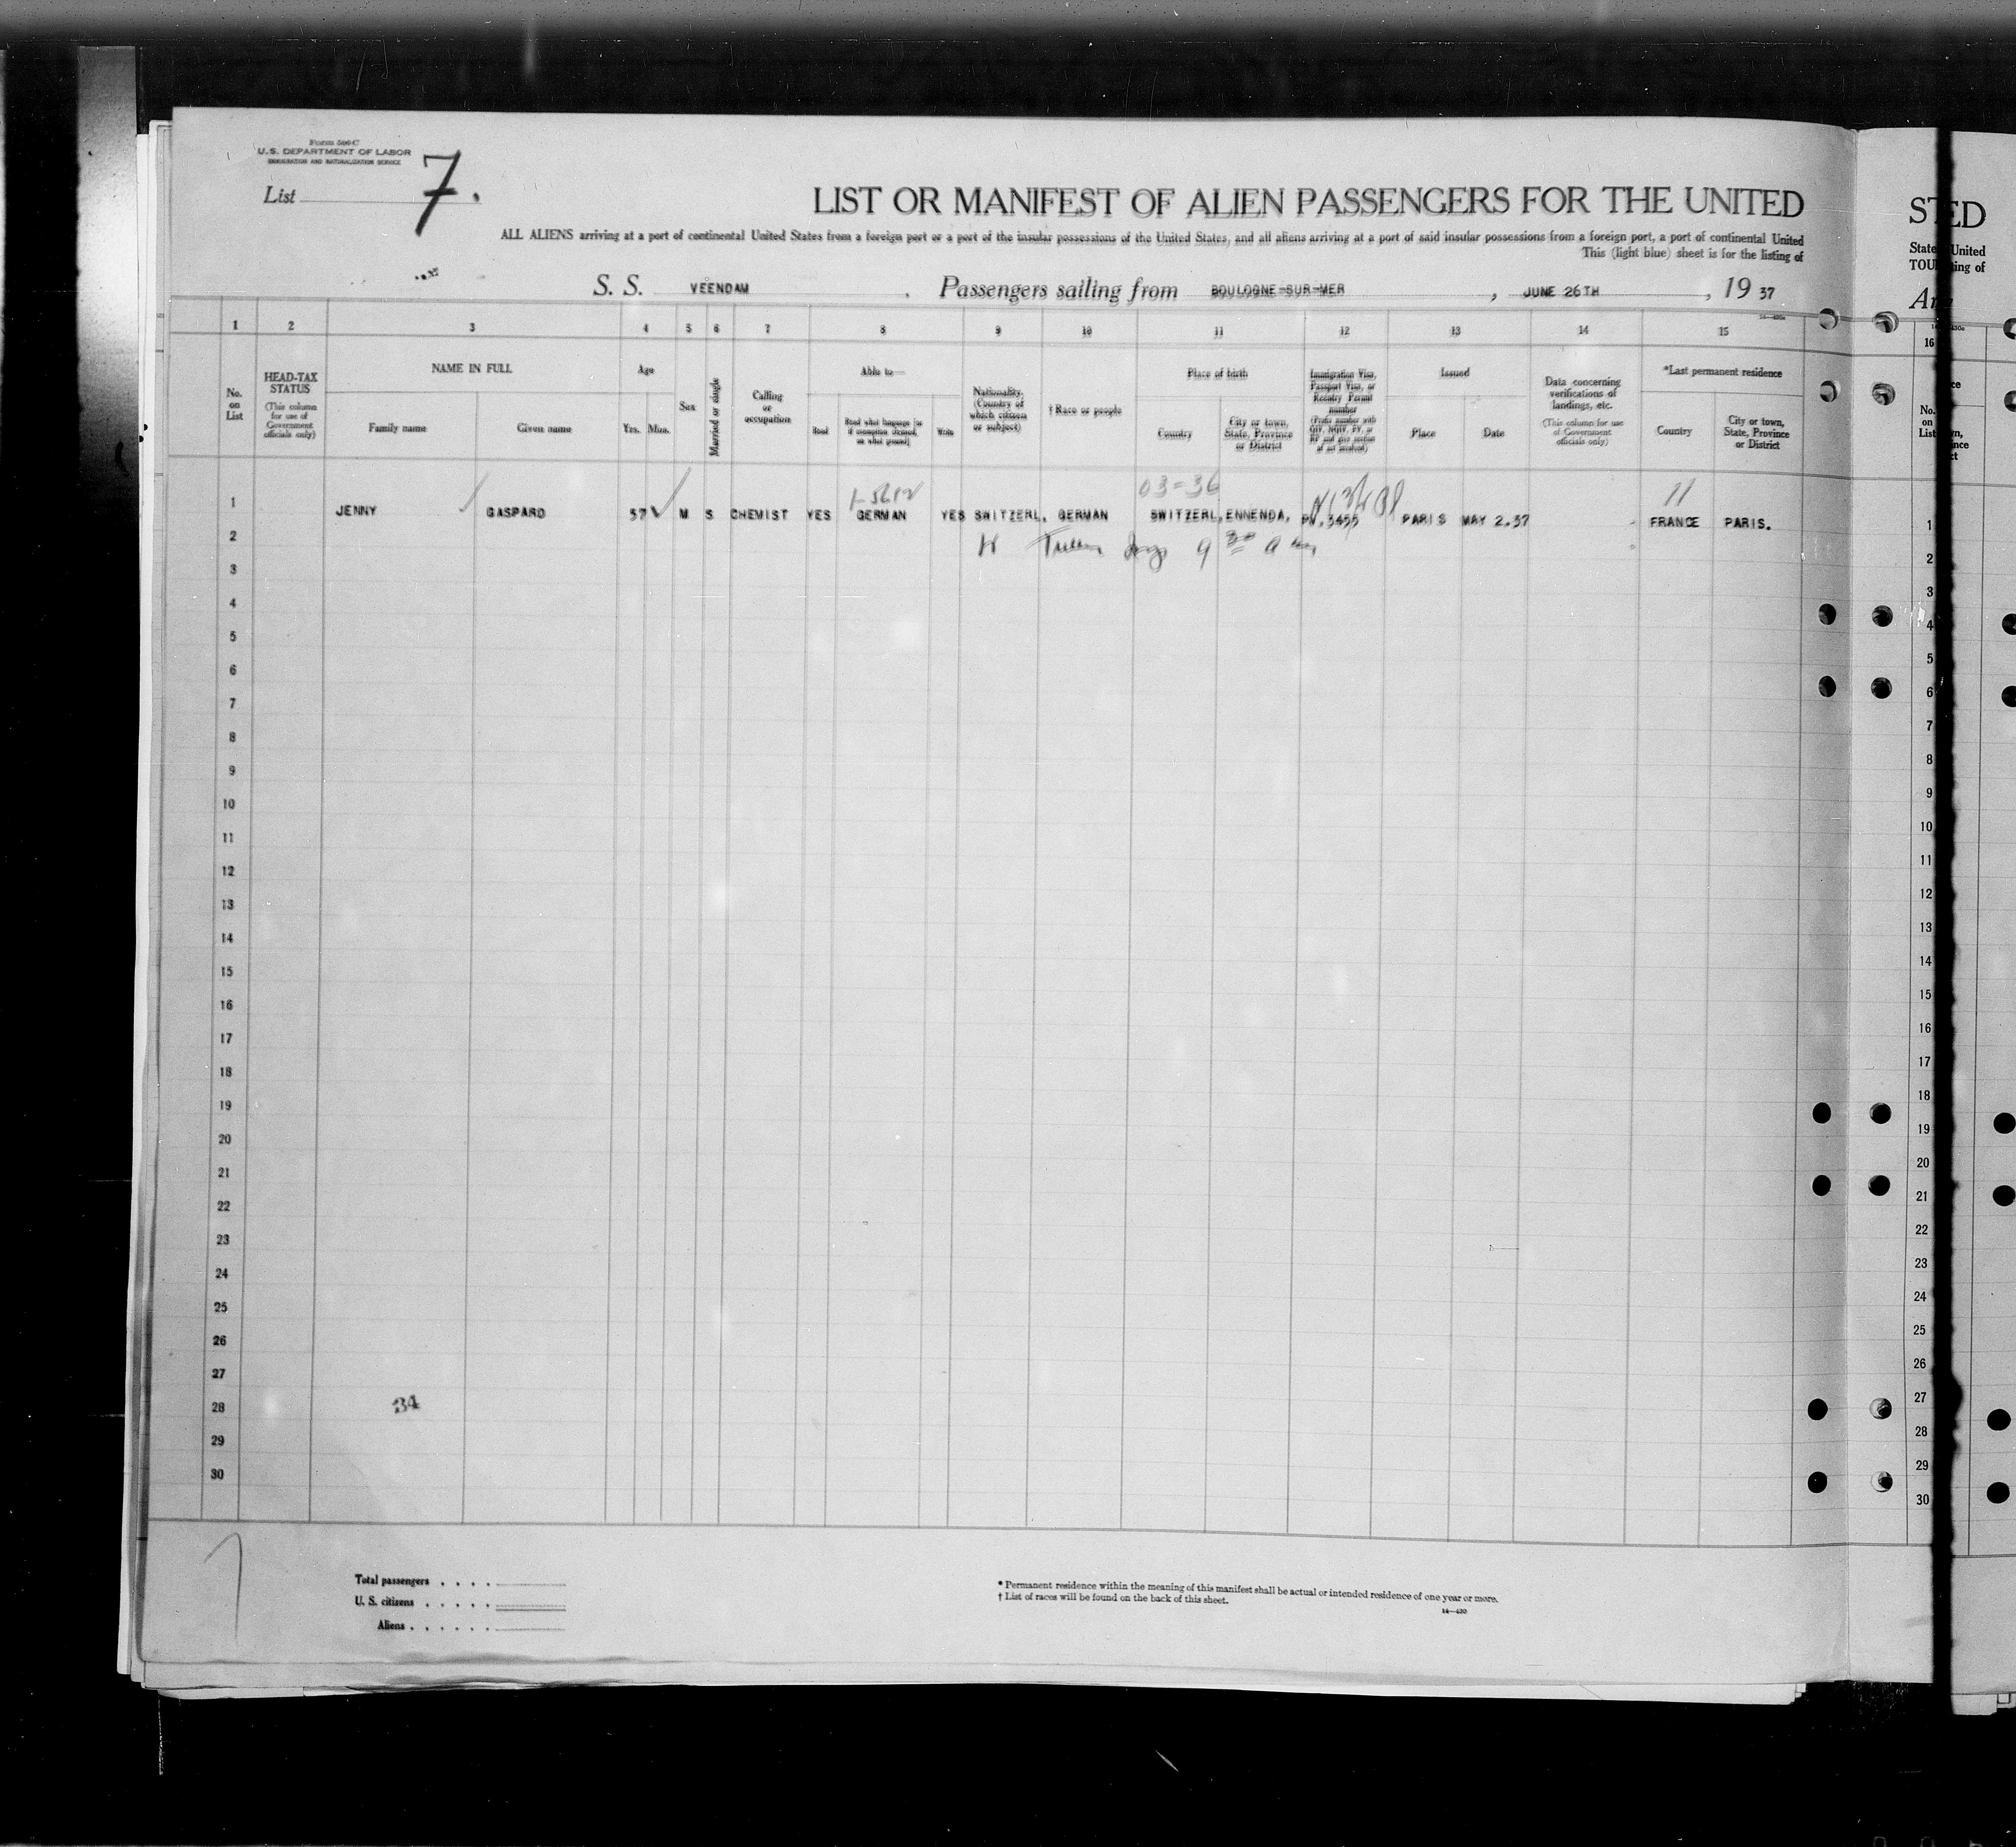 Form 500 C
U.S. DEPARTMENT OF LABOR
IMMIGRATION AND NATURALIZATION SERVICE
List 7.
LIST OR MANIFEST OF ALIEN PASSENGERS FOR THE UNITED
ALL ALIENS arriving at a port of continental United States from a foreign port or a port of the insular possessions of the United States, and all aliens arriving at a port of said insular possessions from a foreign port, a port of continental United
This (light blue) sheet is for the listing of
S. S. VEENDAM , Passengers sailing from BOULOGNE-SUR-MER , JUNE 26TH , 19 37
1 2 3 4 5 6 7 8 9 10 11 12 13 14 15
No. on List
HEAD-TAX STATUS
(This column for use of Government officials only)
NAME IN FULL
Family name
Given name
Age
Yrs. Mos.
Sex
Married or single
Calling or occupation
Able to—
Read
Read what language [or if exemption claimed, on what ground]
Write
Nationality. (Country of which citizen or subject)
† Race or people
Place of birth
Country
City or town, State, Province or District
Immigration Visa, Passport Visa, or Reentry Permit number
(Prefix number with QIV, NQIV, PV, or RP and give section of act involved)
Issued
Place
Date
Data concerning verifications of landings, etc.
(This column for use of Government officials only)
*Last permanent residence
Country
City or town, State, Province or District
03=36
11
1 JENNY GASPARD 37 M S CHEMIST YES GERMAN YES SWITZERL. GERMAN SWITZERL, ENNENDA, PV.3455 PARIS MAY 2.37 FRANCE PARIS.
2
3
4
5
6
7
8
9
10
11
12
13
14
15
16
17
18
19
20
21
22
23
24
25
26
27
28 34
29
30
Total passengers . . . .
U. S. citizens . . . . .
Aliens . . . . . .
* Permanent residence within the meaning of this manifest shall be actual or intended residence of one year or more.
† List of races will be found on the back of this sheet.
14—430
STED
State United
TOU ing of
16
No. on List
1
2
3
4
5
6
7
8
9
10
11
12
13
14
15
16
17
18
19
20
21
22
23
24
25
26
27
28
29
30